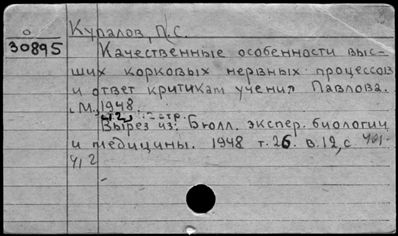 Купалов, П.С.
О
30895
Качественные особенности выс-
ших корковых нервных процессов
и ответ критикам учения Павлова.
М., 1948.
2 стр.
Вырез из: Бюлл. экспер. биологии
и медицины. 1948 т. 26. в. 12, с 401-
412